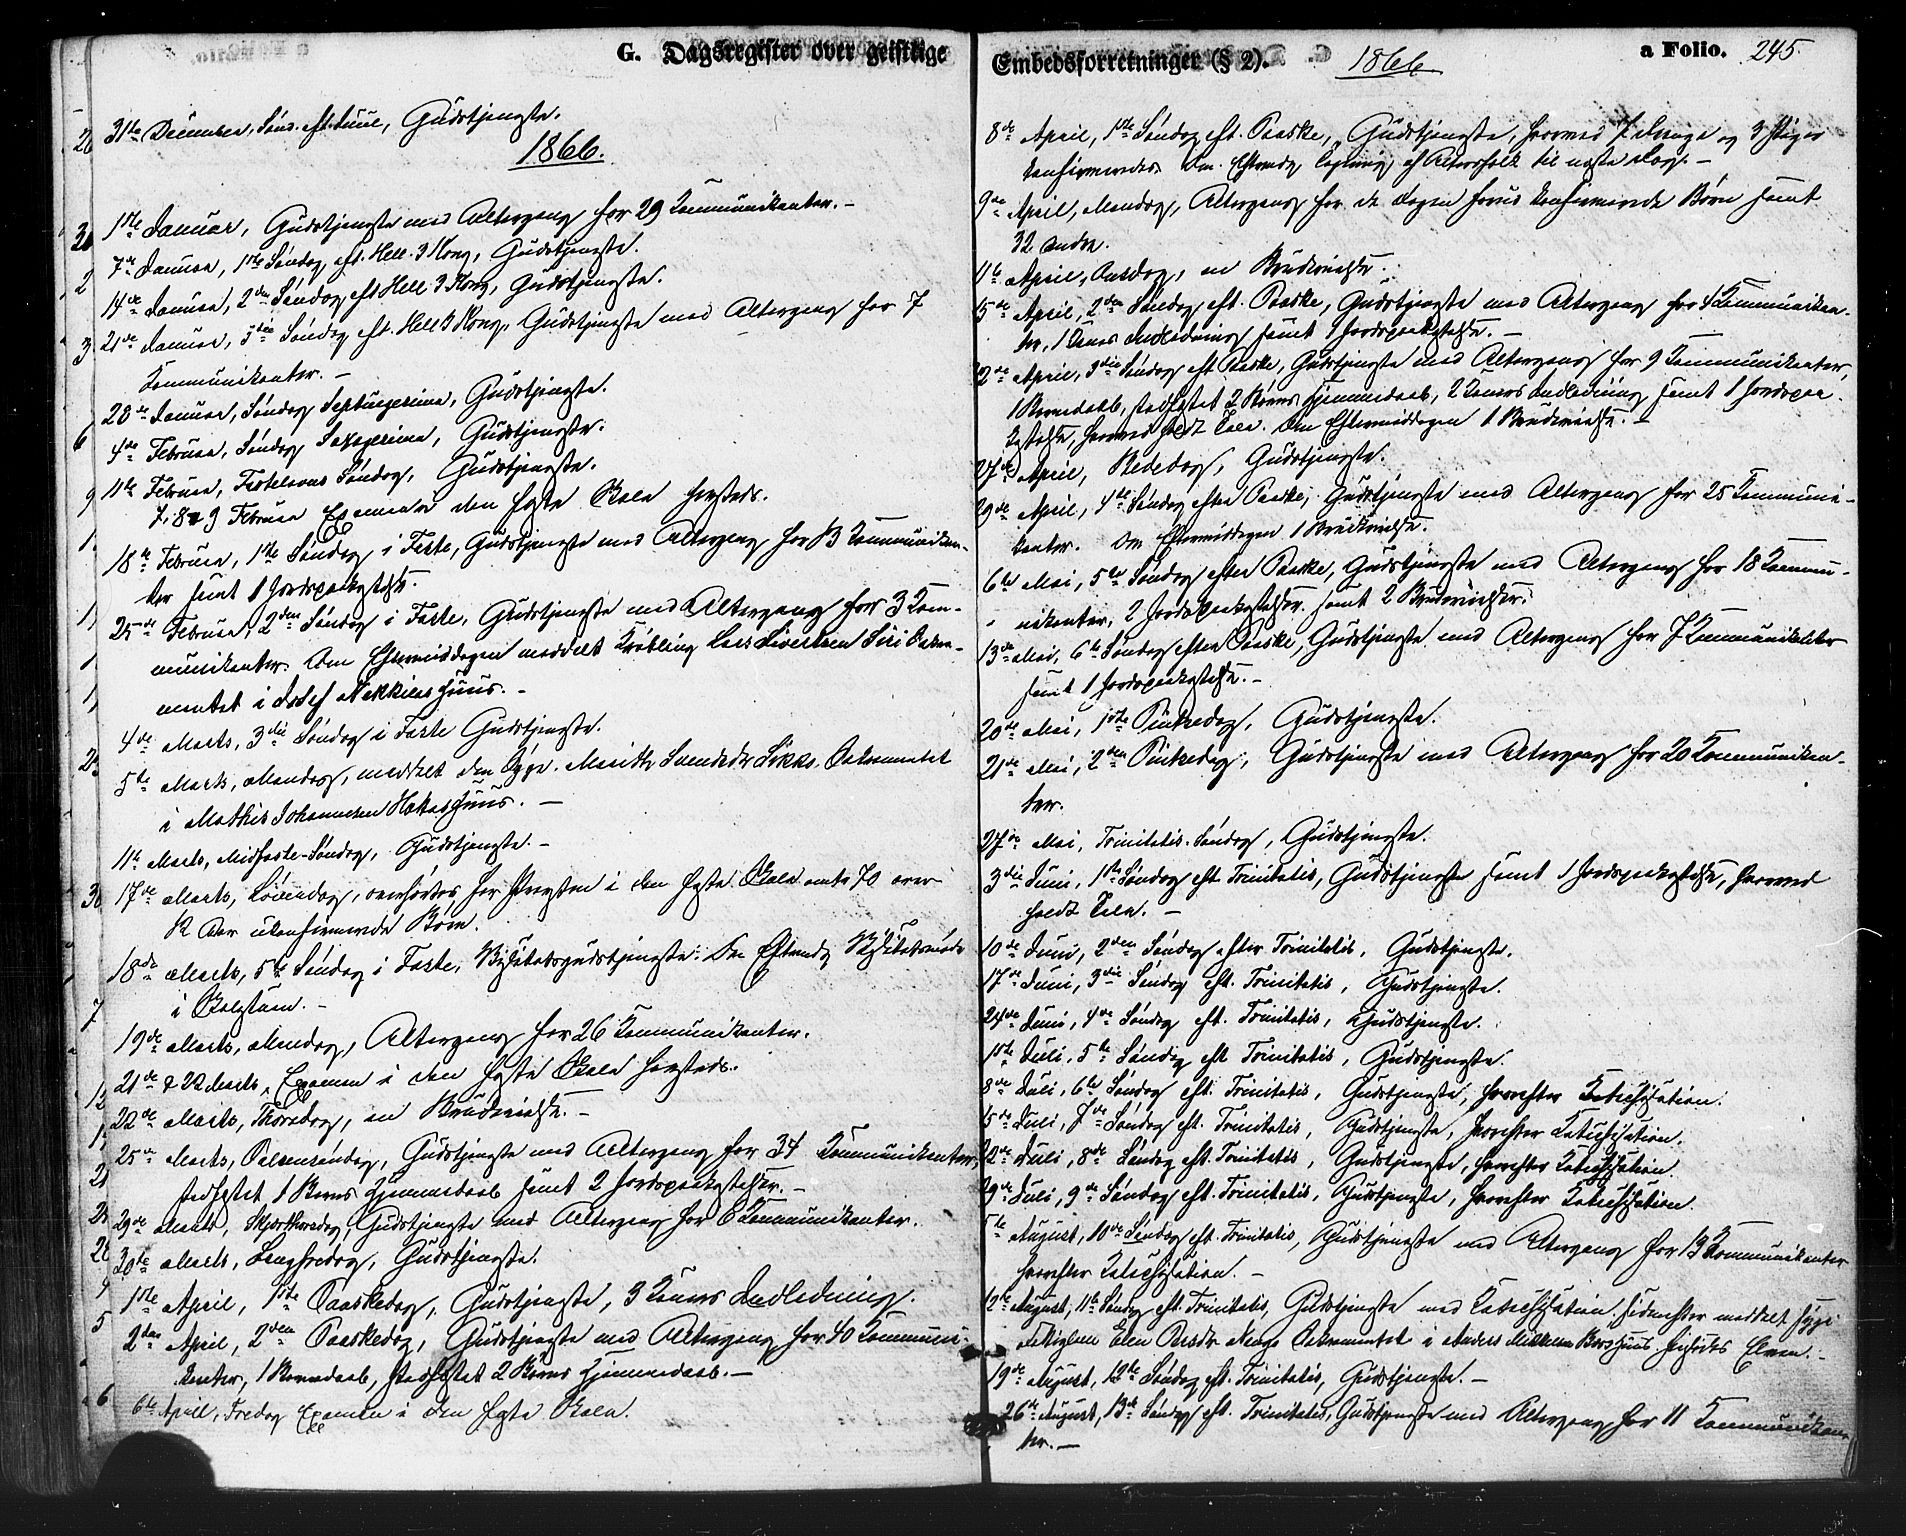 G. Dagsregister over geistlige
31te December, Sønd. eft. Juul, Gudstjeneste.
1866.
1ste Januar, Gudstjeneste med Altergang for 29 Kommunikanter. —
7de Januar, 1ste Søndag eft. Hell. 3 Kong, Gudstjeneste.
14de Januar, 2den Søndag eft Hell 3 Kong, Gudstjeneste.
21de Januar, 3die Søndag eft. Hell 3 Kong, Gudstjeneste med Altergang for 7
Kommunikanter. —
28de Januar, Søndag Septuagesima, Gudstjeneste.
4de Februar, Søndag Sexagesima, Gudstjeneste.
11te Februar, Fastelavns Søndag, Gudstjeneste.
7, 8 & 9 Februar Examen i den faste Skole hersteds.
18de Februar, 1ste Søndag i Faste, Gudstjeneste med Altergang for 13 Kommunikan-
ter samt 1 Jordpaakastelse.
25de Februar, 2den Søndag i Faste, Gudstjeneste med Altergang for 3 Kom-
munikanter. Den Eftermiddagen meddelt Krøbling Lars Sivertsen Siri Sakra-
mentet i Josef Nekkilas Huus. —
4de Marts, 3die Søndag i Faste Gudstjeneste.
5te Marts, Mandag, meddelt den syge Marith Svendsdr Sokki Sakramentet
i Mathis Johannesen Hættas Huus. —
11te Marts, Midfaste-Søndag, Gudstjeneste. —
17de Marts, Løverdag, overhørtes for Præsten i den faste Skole omtr 70 over
12 Aar ukonfirmerede Børn.
18de Marts, 5te Søndag i Faste, Visitatsgudstjeneste. Den Eftermdg Visitatsmøde
i Skolestuen. —
19de Marts, Mandag, Altergang for 26 Kommunikanter.
21de & 22 Marts, Examen i den faste Skole hersteds.
22de Marts, Thorsdag, en Brudevielse. —
25de Marts, Palmesøndag, Gudstjeneste med Altergang for 34 Kommunikanter,
stadfæstet 1 Barns Hjemmedaab samt 2 Jordpaakastelser. —
29de Marts, Skjærthorsdag, Gudstjeneste med Altergang for 6 Kommunikanter.
30te Marts, Langfredag, Gudstjeneste.
1ste April, 1ste Paaskedag, Gudstjeneste, 3 Koners Indledning.
2den April, 2den Paaskedag, Gudstjeneste med Altergang for 40 Kommuni-
kanter, 1 Barnedaab, stadfæstet 2 Børns Hjemmedaab. —
6te April, Fredag Examen i den faste Skole.
Embedsforretninger (§ 2). 1866 a Folio. 245.
8de April, 1ste Søndag eft. Paaske, Gudstjeneste, hvorved 7 Drenge og 3 Piger
konfirmeredes. Den Eftermdg Tegning af Altersfolk til næste Dag. —
9de April, Mandag, Altergang for de Dagen forud konfirmerede Børn samt
32 andre.
11te April, Onsdag, en Brudevielse.
15de April, 2den Søndag eft. Paaske, Gudstjeneste med Altergang for 4 Kommunikan-
ter, 1 Kones Indledning samt 1 Jordpaakastelse. —
22de April, 3die Søndag eft Paaske, Gudstjeneste med Altergang for 9 Kommunikanter,
1 Barnedaab, stadfæstet 2 Børns Hjemmedaab, 2 Koners Indledning samt 1 Jordpaa-
kastelse, hvorved holdt Tale. Den Eftermiddagen 1 Brudevielse. —
27de April, Bededag, Gudstjeneste.
29de April, 4de Søndag efter Paaske, Gudstjeneste med Altergang for 25 Kommuni-
kanter. Den Eftermiddagen 1 Brudevielse.
6te Mai, 5te Søndag efter Paaske, Gudstjeneste med Altergang for 18 Kommu-
nikanter, 2 Jordpaakastelser samt 2 Brudevielser.
13de Mai, 6te Søndag efter Paaske, Gudstjeneste med Altergang for 7 Kommunikanter
samt 1 Jordpaakastelse. —
20de Mai, 1ste Pintsedag, Gudstjeneste.
21de Mai, 2den Pintsedag, Gudstjeneste med Altergang for 20 Kommunikan-
ter.
27de Mai, Trinitatis-Søndag, Gudstjeneste.
3die Juni, 1ste Søndag eft. Trinitatis, Gudstjeneste samt 1 Jordpaakastelse, hvorved
holdt Tale. —
10de Juni, 2den Søndag efter Trinitatis, Gudstjeneste.
17de Juni, 3die Søndag eft. Trinitatis, Gudstjeneste.
24de Juni, 4de Søndag eft. Trinitatis, Gudstjeneste.
1ste Juli, 5te Søndag eft Trinitatis, Gudstjeneste.
8de Juli, 6te Søndag eft. Trinitatis, Gudstjeneste, hvorefter Katechisation.
15de Juli, 7de Søndag eft. Trinitatis, Gudstjeneste, hvorefter Katechisation.
22de Juli, 8de Søndag eft. Trinitatis, Gudstjeneste, hvorefter Katechisation.
29de Juli, 9de Søndag eft. Trinitatis, Gudstjeneste, hvorefter Katechisation.
5te August, 10de Søndag eft. Trinitatis, Gudstjeneste med Altergang for 13 Kommunikanter
hvorefter Katechisation. —
12te August, 11te Søndag eft. Trinitatis, Gudstjeneste med Katechisation. Sidenefter meddelt syge
Elen Persdr Sakramentet i Anders Mikkelsen Huus hiisides Elven. —
19de August, 12te Søndag eft. Trinitatis, Gudstjeneste. —
26de August, 13de Søndag eft. Trinitatis, Gudstjeneste med Altergang for 11 Kommunikan-
ter. —